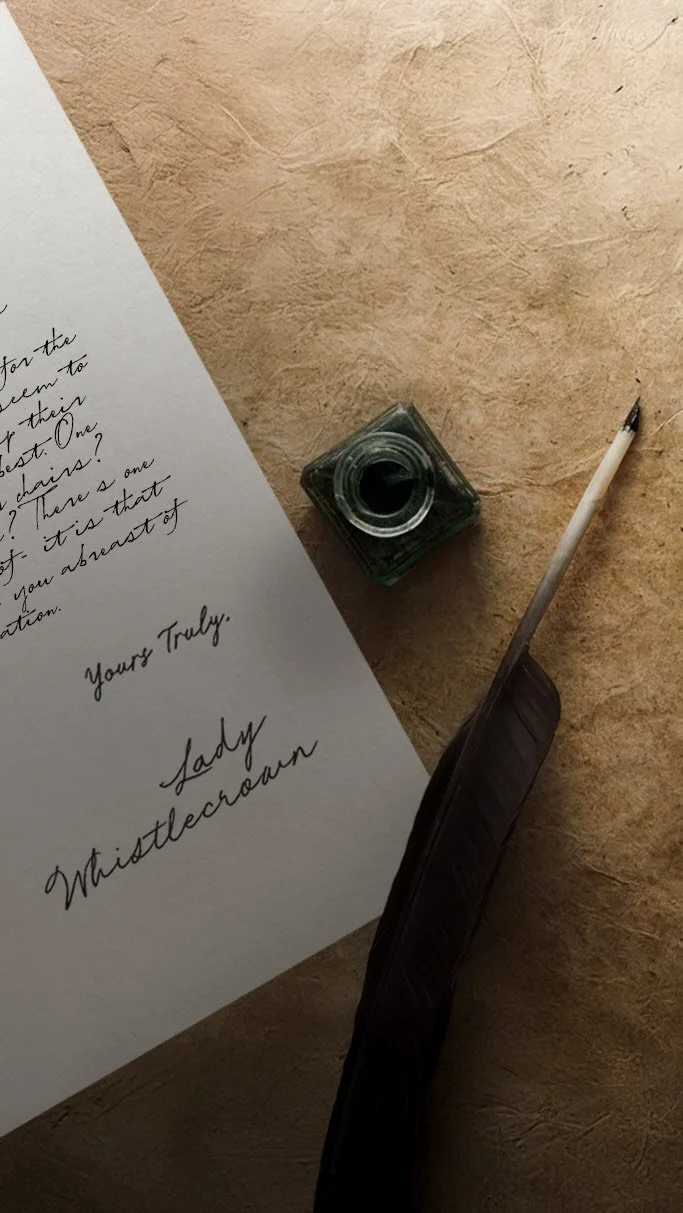 for the
seem to
their
best. One
chairs?
? There's one
of- it is that
you abreast of
ation.
Yours Truly.
Lady
Whistlecrown